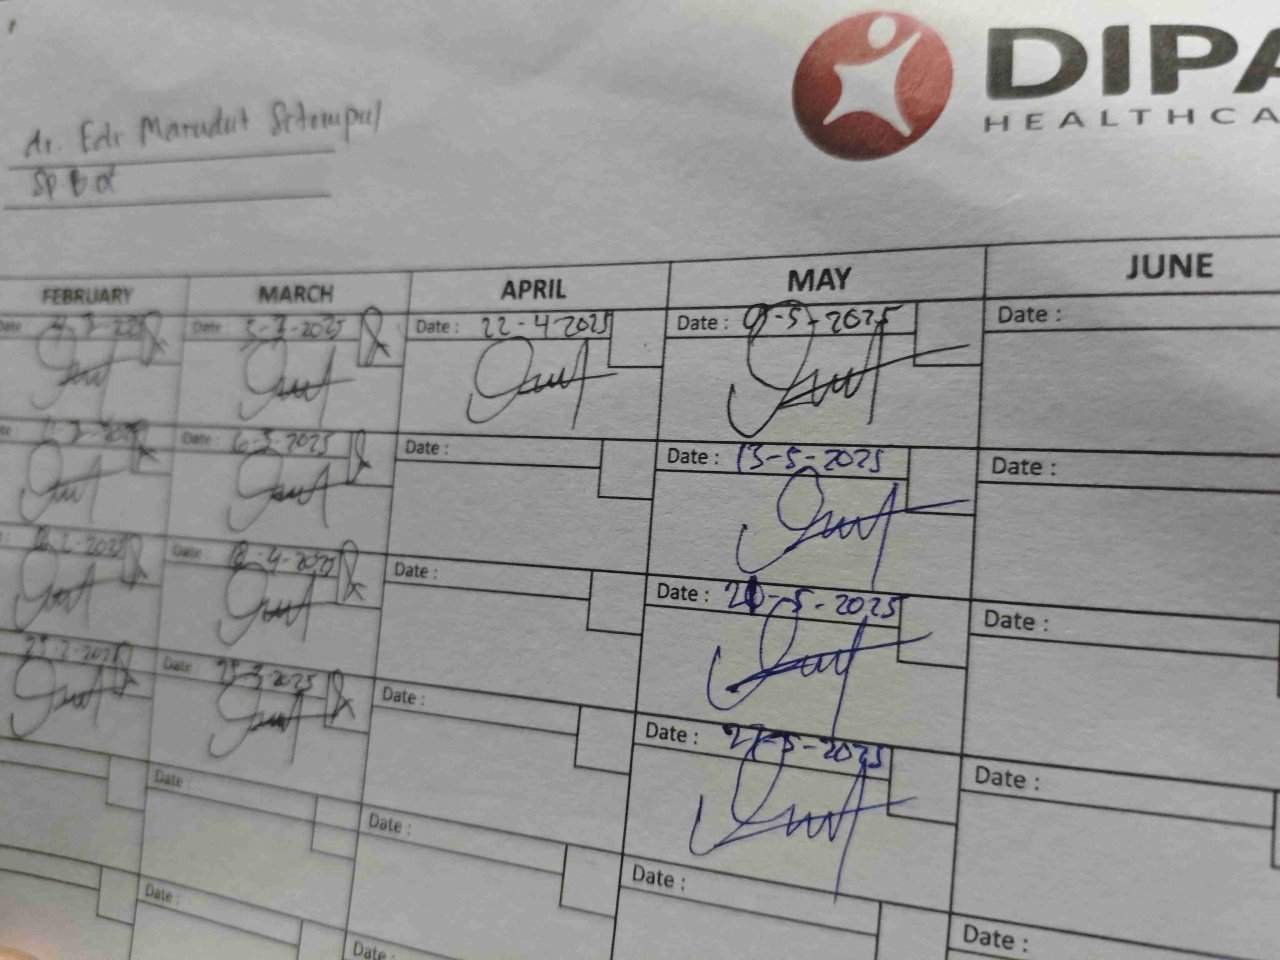 DIPA
HEALTHCA
dr. Edr Marudut Sitompul
Sp B OT
FEBRUARY MARCH APRIL MAY JUNE
Date : Date : 22-4-2025 Date : 9-5-2025 Date :
Date : 6-3-2025 Date : Date : 13-5-2025 Date :
Date : Date : Date : -5-2025 Date :
Date : 25-3-2025 Date : Date : 27-5-2025 Date :
Date : Date : Date : Date :
Date : Date :